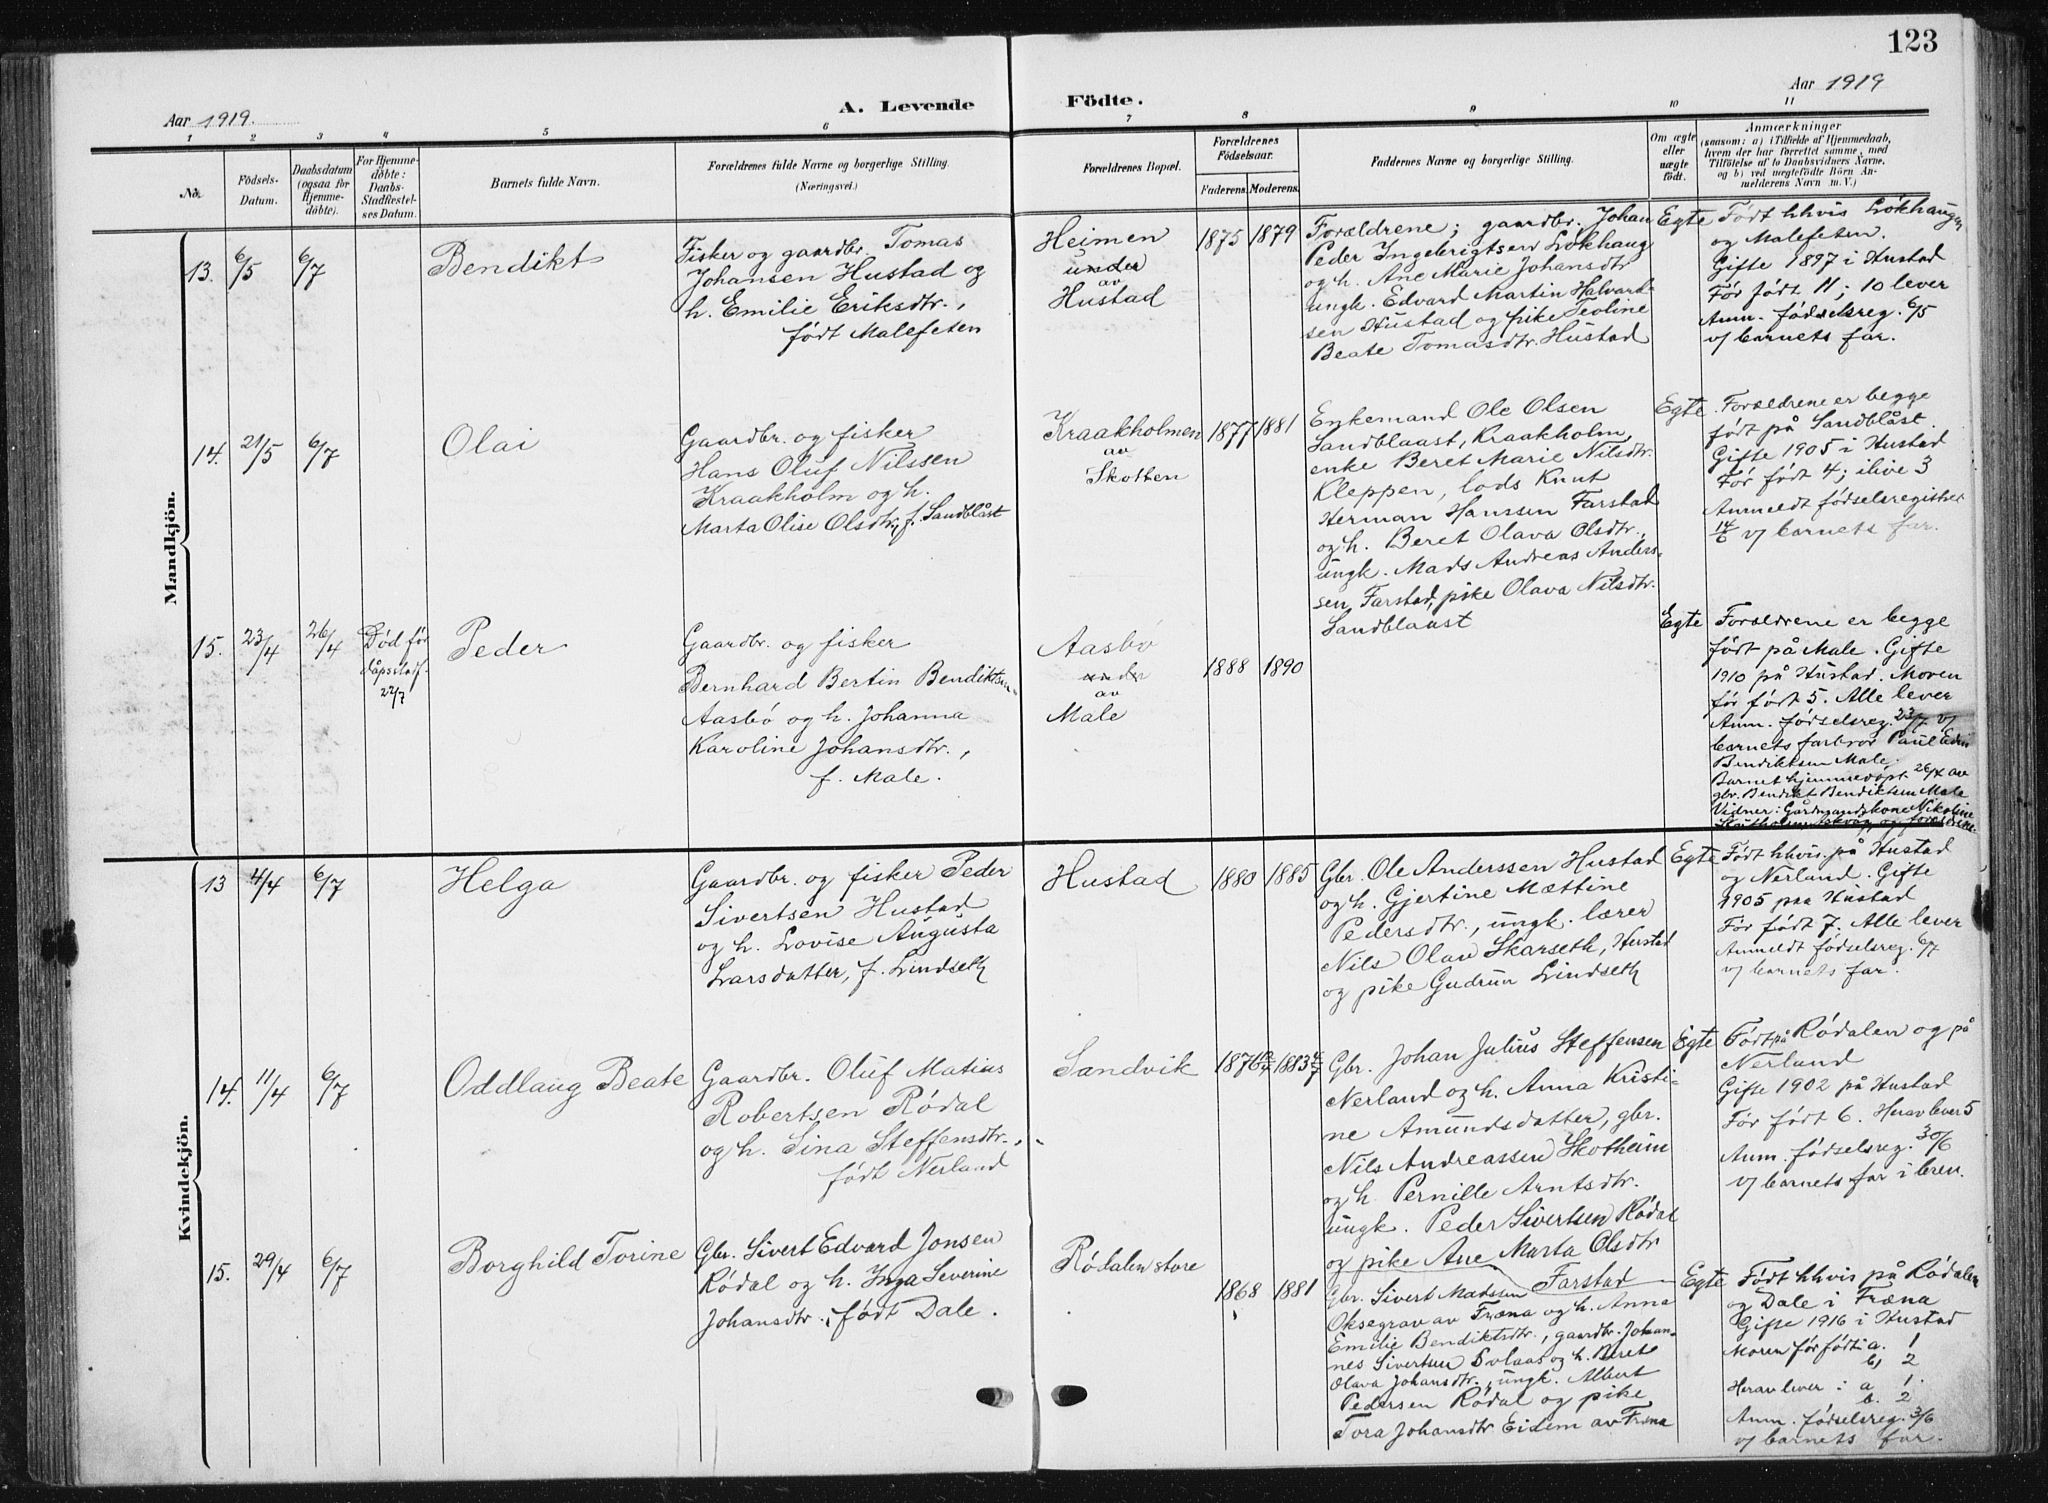 123
Aar 1919.
A. Levende Födte.
Aar 1919
1 2 3 4 5 6 7 8 9 10 11
No.
Födsels-Datum.
Daabsdatum (ogsaa for Hjemme-döbte).
For Hjemme-döbte: Daabs-Stadfæstel-ses Datum.
Barnets fulde Navn.
Forældrenes fulde Navne og borgerlige Stilling.
(Næringsvei.)
Forældrenes Bopæl.
Forældrenes Födselsaar.
Faderens. Moderens.
Faddernes Navne og borgerlige Stilling.
Om ægte eller uægte födt.
Anmærkninger
(saasom: a) i Tilfælde af Hjemmedaab,
hvem der har forrettet samme, med
Tilföielse af to Daabsvidners Navne,
og b) ved uægtefödte Börn An-
melderens Navn m. V.)
Mandkjön.
13. 6/5 6/7
Bendikt
Fisker og gaardbr. Tomas
Johansen Hustad og
h. Emilie Eriksdtr.,
født Malefeten
Heimen
under
av
Hustad
1875 1879
Forældrene; gaardbr. Johan
Peder Ingebrigtsen Lökhaug
og h. Ane Marie Johansdtr
ungk. Edvard Martin Halvard-
sen Hustad og pike Teoline
Beate Tomasdtr. Hustad
Egte
Født hhvis Lökhaugen
og Malefeten.
Gifte 1897 i Hustad
Før født 11; 10 lever
Anm. fødselsreg. 6/5
v/ barnets far.
14. 21/5 6/7
Olai
Gaardbr. og fisker
Hans Oluf Nilssen
Kraakholm og h.
Marta Olise Olsdtr., f. Sandblåst
Kraakholmen
av
Skotten
1877 1881
Enkemand Ole Olsen
Sandblaast, Kraakholm
enke Beret Marie Nilsdtr.
Kleppen, lods Knut
Herman Hanssen Farstad
og h. Beret Olava Olsdtr.,
ungk. Mads Andreas Anders-
sen Farstad, pike Olava Nilsdtr.
Sandblaast
Egte
Forældrene er begge
født på Sandblåst.
Gifte 1905 i Hustad
Før født 4; ilive 3
Anmeldt fødselsregistret
14/6 v/ barnets far.
15. 23/4 26/4
Død før
dåpsstadf.
22/7
Peder
Gaardbr. og fisker
Bernhard Bertin Bendiktsen
Aasbø og h. Johanna
Karoline Johansdtr.,
f. Male.
Aasbø
under
av
Male
1888 1890
Egte
Forældrene er begge
født på Male. Gifte
1910 på Hustad. Moren
før født 5. Alle lever
Anm. fødselsreg. 23/7 v/
barnets farbror Paul Edin
Bendiktsen Male.
Barnet hjemmedøpt 26/4 av
gbr. Bendikt Bendiktsen Male
Vidner: Gårdmandskone Nikoline
Kvindekjön.
13 4/4 6/7
Helga
Gaardbr. og fisker Peder
Sivertsen Hustad
og h. Lovise Augusta
Larsdatter, f. Lindseth
Hustad
1880 1885
Gbr. Ole Anderssen Hustad
og h. Gjertine Mættine
Pedersdtr., ungk. lærer
Nils Olav Skarseth, Hustad
og pike Gudrun Lindseth
Egte
Født hhvis på Hustad
og Nerland. Gifte
1905 paa Hustad
Før født 7. Alle lever
Anmeldt fødselsreg. 6/7
v/ barnets far.
14. 11/4 6/7
Oddlaug Beate
Gaardbr. Oluf Matius
Robertsen Rødal
og h. Sina Steffensdtr.,
født Nerland
Sandvik
1876 1883
Gbr. Johan Julius Steffensen
Nerland og h. Anna Kristi-
ne Amundsdatter, gbr.
Nils Andreassen Skotheim
og h. Pernille Arntsdtr.
ungk. Peder Sivertsen Rødal
og pike Ane Marta Olsdtr
Farstad
Egte
Født på Rødalen og på
Nerland
Gifte 1902 på Hustad
Før født 6. Herav lever 5
Anm. fødselsreg. 30/6
v/ barnets far i brev.
15. 29/4 6/7
Borghild Torine
Gbr. Sivert Edvard Jonsen
Rødal og h. Inga Severine
Johansdtr., født Dale.
Rødalen store
1868 1881
Gbr. Sivert Madssen
Oksegrav av Fræna og h. Anna
Emilie Bendiktsdtr., gaardbr. Johan-
nes Sivertsen Solaas og h. Berete
Olava Johansdtr., ungk. Albert
Pedersen Rødal og pike
Tora Johansdtr Eidem av Fræna
Egte
Født hhvis på Rødalen
og Dale i Fræna
Gifte 1916 i Hustad
Moren før født: a. 1
b. 2
Herav lever: a. 1.
b. 2
Anm. fødselsreg. 3/6
v/ barnets far.